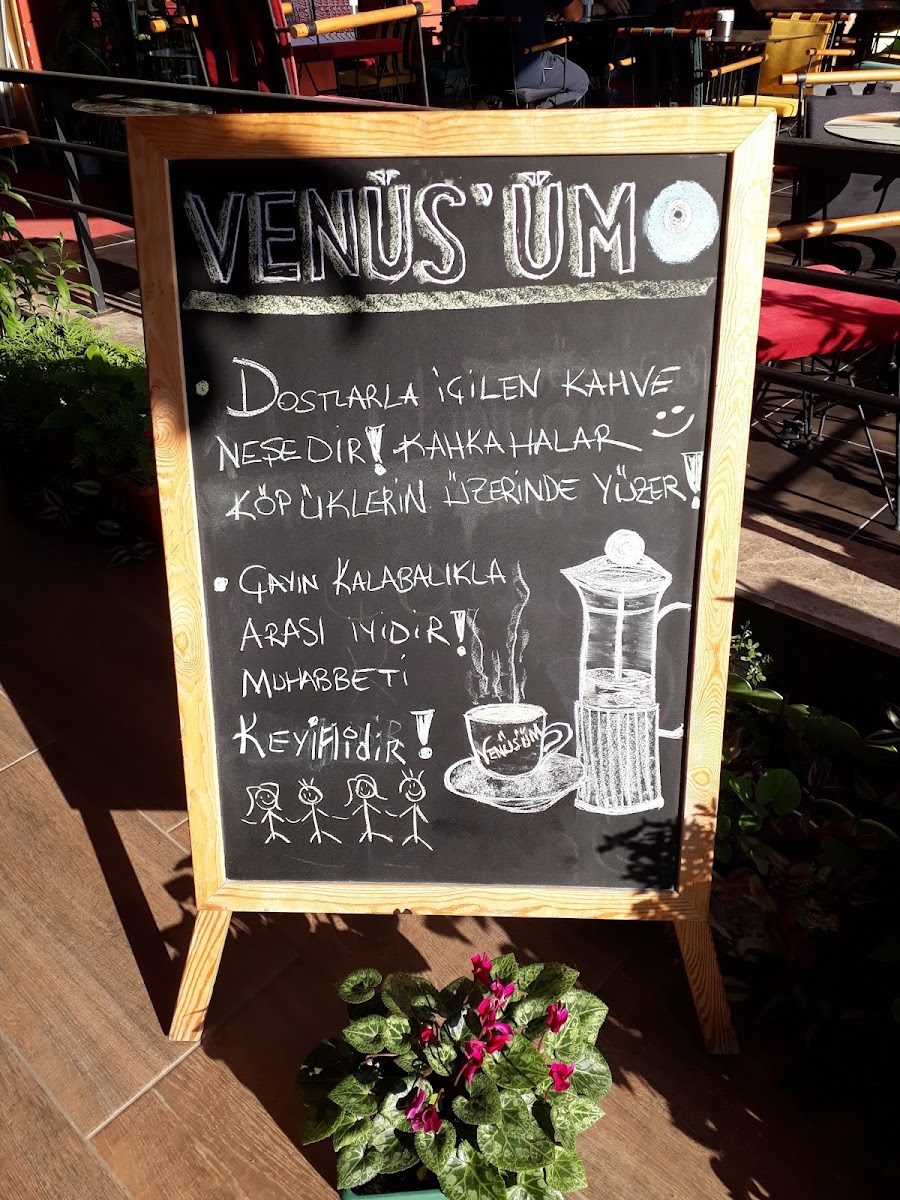 VENÜS'ÜM
• DOSTLARLA İÇİLEN KAHVE
NEŞEDİR! KAHKAHALAR
KÖPÜKLERİN ÜZERİNDE YÜZER!
• ÇAYIN KALABALIKLA
ARASI İYİDİR!
MUHABBETİ
KEYİFLİDİR!
VENÜS'ÜM